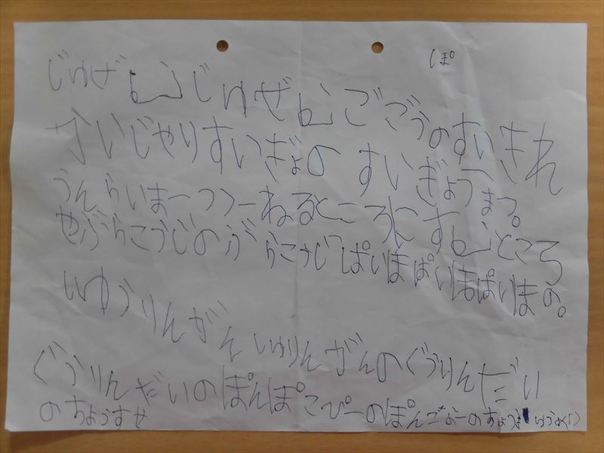 ぽ
じゅぜむじゅぜむごごうのすいきれ
かいじゃりすいぎょの すいぎょうまつ。
うんらいまーつつーねるところにすむところ
やぶらこうじのぶらこうじぱいぽぱいぽぱいぽの。
いゆうりんがんいゅりんがんのぐうりんだい
ぐうりんだいのぽんぽこぴーのぽんごなーのちょうき
のちょうすけ